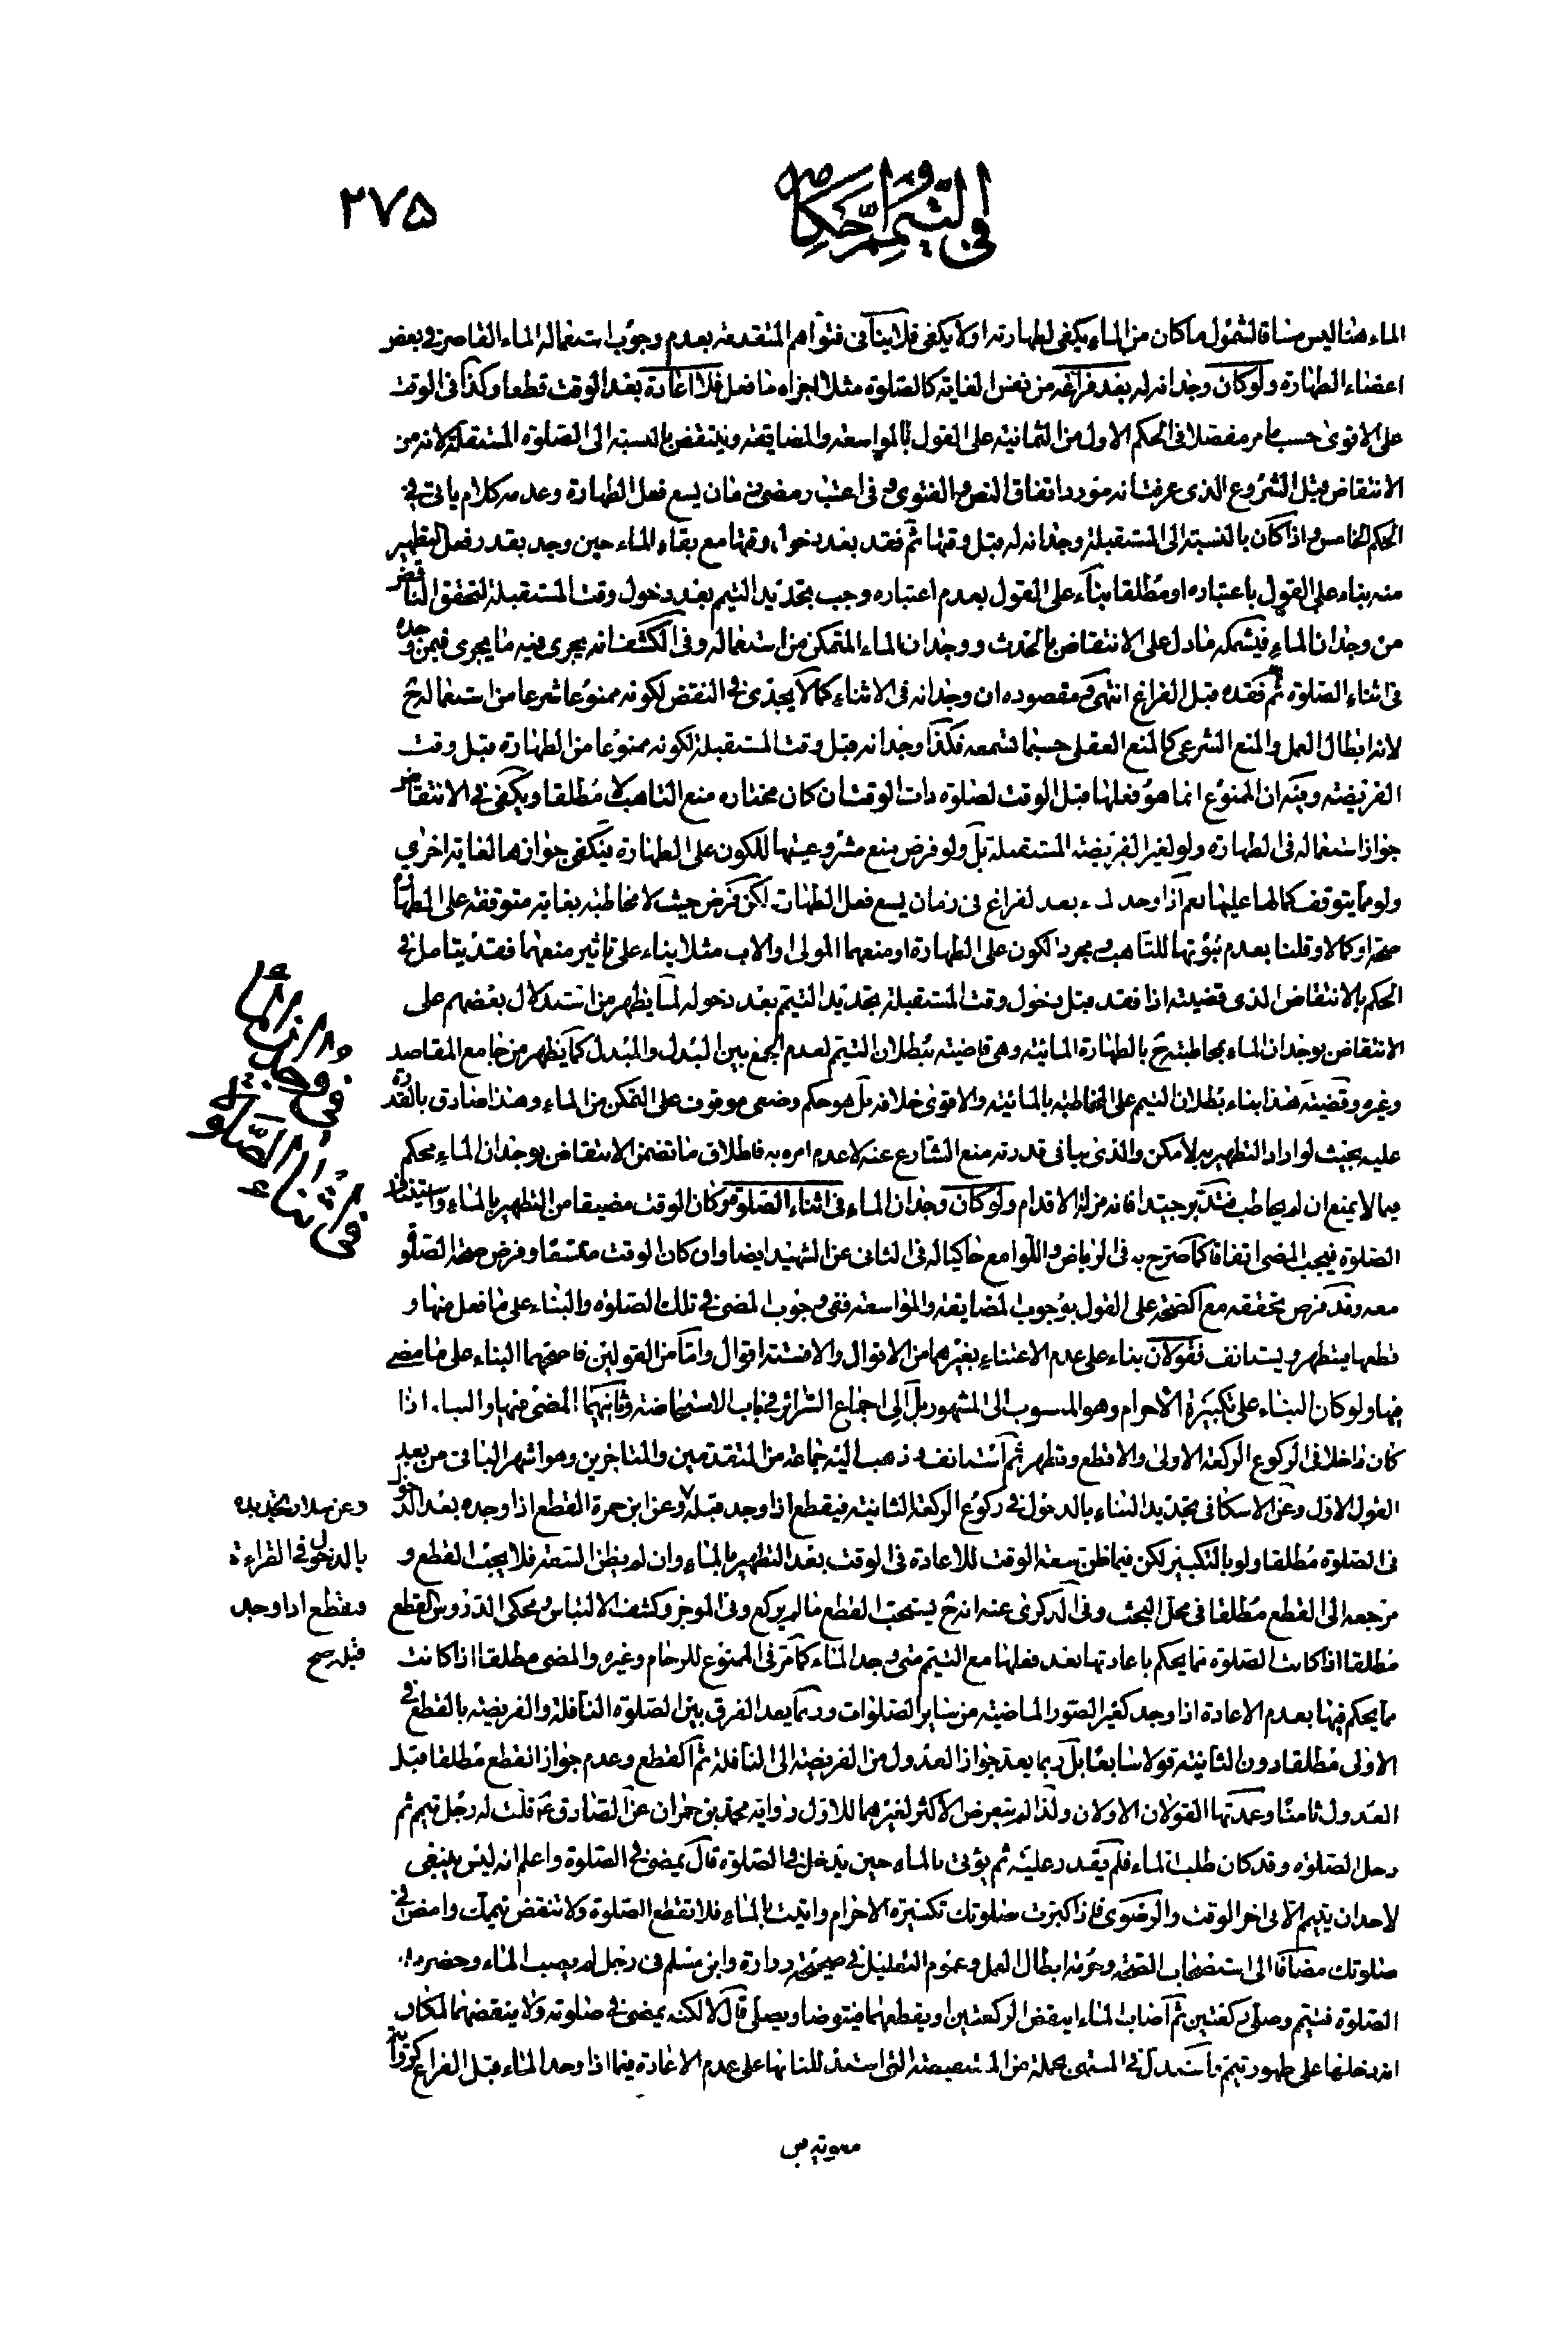 في التيمم واحكامه
٢٧۵
الماء هنا ليس مساقا لشمول ما كان من الماء يكفى لطهارته او لا يكفى فلا ينافى فتواهم المتقدمة بعدم وجوب استعماله الماء القاصر فى بعض
اعضاء الطهارة ولو كان وجدانه له بعد فراغه من نفس الغاية كالصلوة مثلا اجزاه ما فعل فلا اعادة بعد الوقت قطعا وكذا فى الوقت
على الاقوى حسب ما مر مفصلا فى الحكم الاول من الثمانية على القول بالمواسعة والمضايقة وينتقض بالنسبة الى الصلوة المستقبلة لانه من
الانتقاض قبل الشروع الذى عرفت انه مورد اتفاق النص والفتوى وفى اعتبار مضى زمان يسع فعل الطهارة وعدمه كلام ياتى فى
الحكم الخامس واذا كان بالنسبة الى المستقبلة وجدانه له قبل وقتها ثم فقد بعد دخول وقتها مع بقاء الماء حين وجد بقدر فعل التطهير
منه بناء على القول باعتباره او مطلقا بناء على القول بعدم اعتباره وجب تجديد التيمم بعد دخول وقت المستقبلة لتحقق الناقض
من وجدان الماء فيشمله ما دل على الانتقاض بالحدث ووجدان الماء المتمكن من استعماله وفى الكشف انه يجرى فيه ما يجرى فيمن وجده
فى اثناء الصلوة ثم فقده قبل الفراغ انتهى ومقصوده ان وجدانه فى الاثناء كما لا يجدى فى النقض لكونه ممنوعا شرعا من استعماله ح
لانه ابطال العمل والمنع الشرعى كالمنع العقلى حسبما تسمعه فكذا وجدانه قبل وقت المستقبلة لكونه ممنوعا من الطهارة قبل وقت
الفريضة وفيه ان الممنوع انما هو فعلها قبل الوقت لصلوة ذات الوقت ان كان مختاره منع التاهب لا مطلقا ويكفى فى الانتقاض
جواز استعماله فى الطهارة ولو لغير الفريضة المستقبلة بل ولو فرض منع مشروعيتها للكون على الطهارة يكفى جوازها لغاية اخرى
ولو مما يتوقف كمالها عليها نعم اذا وجد الماء بعد الفراغ فى زمان يسع فعل الطهارة لكن فرض حيث لا مخاطبة بغاية متوقفة على الطهارة
صحة او كمالا وقلنا بعدم ثبوتها للتاهب ومجرد الكون على الطهارة او منعهما المولى او الاب مثلا بناء على تاثير منعهما فقد يتامل فى
الحكم بالانتقاض الذى قضيته اذا فقد قبل دخول وقت المستقبلة تجديد التيمم بعد دخوله لما يظهر من استدلال بعضهم على
الانتقاض بوجدان الماء بمخاطبته ح بالطهارة المائية وهى قاضية ببطلان التيمم لعدم الجمع بين البدل والمبدل كما يظهر من جامع المقاصد
وغيره وقضيته هذا بناء بطلان التيمم على المخاطبة بالمائية والاقوى خلافه بل هو حكم وضعى موقوف على التمكن من الماء وهذا صادق بالقدرة
عليه بحيث لو اراد التطهير به لامكن والذى ينافى قدرته منع الشارع عنه لا عدم امره به فاطلاق ما تضمن الانتقاض بوجدان الماء محكم
فيما لا يمنع ان لم يخاطب فتدبر جيدا فانه مزلة الاقدام ولو كان وجدان الماء فى اثناء الصلوة وكان الوقت مضيقا من التطهير بالماء واستيناف
الصلوة فيجب المضى اتفاقا كما صرح به فى الرياض واللوامع حاكيا له فى الثانى عن الشهيد ايضا وان كان الوقت متسعا وفرض صحة الصلوة
معه وقد فرض تحققه مع الصحة على القول بوجوب المضايقة والمواسعة ففى وجوب المضى فى تلك الصلوة والبناء على ما فعل منها و
قطعها فيتطهر ويستانف فقولان بناء على عدم الاعتناء بغيرهما من الاقوال والا فستة اقوال واما من القولين فاصحهما البناء على ما مضى
فيها ولو كان البناء على تكبيرة الاحرام وهو المنسوب الى المشهور بل الى اجماع السرائر فى باب الاستحاضة وثانيهما المضى فيها والبناء اذا
كان داخلا فى الركوع الركعة الاولى والا قطع وتطهر ثم استانف وذهب اليه جماعة من المتقدمين والمتاخرين وهو اشهر الباقى من بعد
القول الاول وعن الاسكافى تجديد البناء بالدخول فى ركوع الركعة الثانية فيقطع اذا وجد قبله وعن ابن حمزة القطع اذا وجده بعد الدخول
فى الصلوة مطلقا ولو بالتكبير لكن فيما ظن سعة الوقت للاعادة فى الوقت بعد التطهير بالماء وان لم يظن السعة فلا يجب القطع و
مرجعه الى القطع مطلقا فى محل البحث وفى الذكرى عنه انه ح يستحب القطع ما لم يركع وفى الموجز وكشف الالتباس ومحكى الدروس القطع
مطلقا اذا كانت الصلوة مما يحكم باعادتها بعد فعلها مع التيمم متى وجد الماء كما مر فى الممنوع للزحام وغيره والمضى مطلقا اذا كانت
مما يحكم فيها بعدم الاعادة اذا وجد كغير الصور الماضية من سائر الصلوات وربما يعد الفرق بين الصلوة النافلة والفريضة بالقطع فى
الاولى مطلقا دون الثانية قولا سابعا بل ربما يعد جواز العدول من الفريضة الى النافلة ثم القطع وعدم جواز القطع مطلقا قبل
العدول ثامنا وعمدتها القولان الاولان ولذا لم يتعرض الاكثر لغيرهما للاول رواية محمد بن حمران عن الصادق ع قلت له رجل تيمم ثم
دخل الصلوة وقد كان طلب الماء فلم يقدر عليه ثم يؤتى بالماء حين يدخل فى الصلوة قال يمضى فى الصلوة واعلم انه ليس ينبغى
لاحد ان يتيمم الا فى اخر الوقت والرضوى فاذا كبرت صلوتك تكبيرة الاحرام واتيت بالماء فلا تقطع الصلوة ولا تنقض تيممك وامض فى
صلوتك مضافا الى استصحاب الصحة وحرمة ابطال العمل وعموم التعليل فى صحيحة زرارة وابن مسلم فى رجل لم يصب الماء وحضرت
الصلوة فتيمم وصلى ركعتين ثم اصاب الماء اينقض الركعتين او يقطعهما فيتوضا ويصلى قال لا لكنه يمضى فى صلوته ولا ينقضهما لمكان
انه دخلها على طهور بتيمم واستدل فى المنتهى بجملة من المستفيضة التى استند للثانى على عدم الاعادة فيما اذا وجد الماء قبل الفراغ كرواية
فى وجدان الماء
فى اثناء الصلوة
وعن سلار تحديده
بالدخول فى القراءة
فيقطع اذا وجد
قبله صح